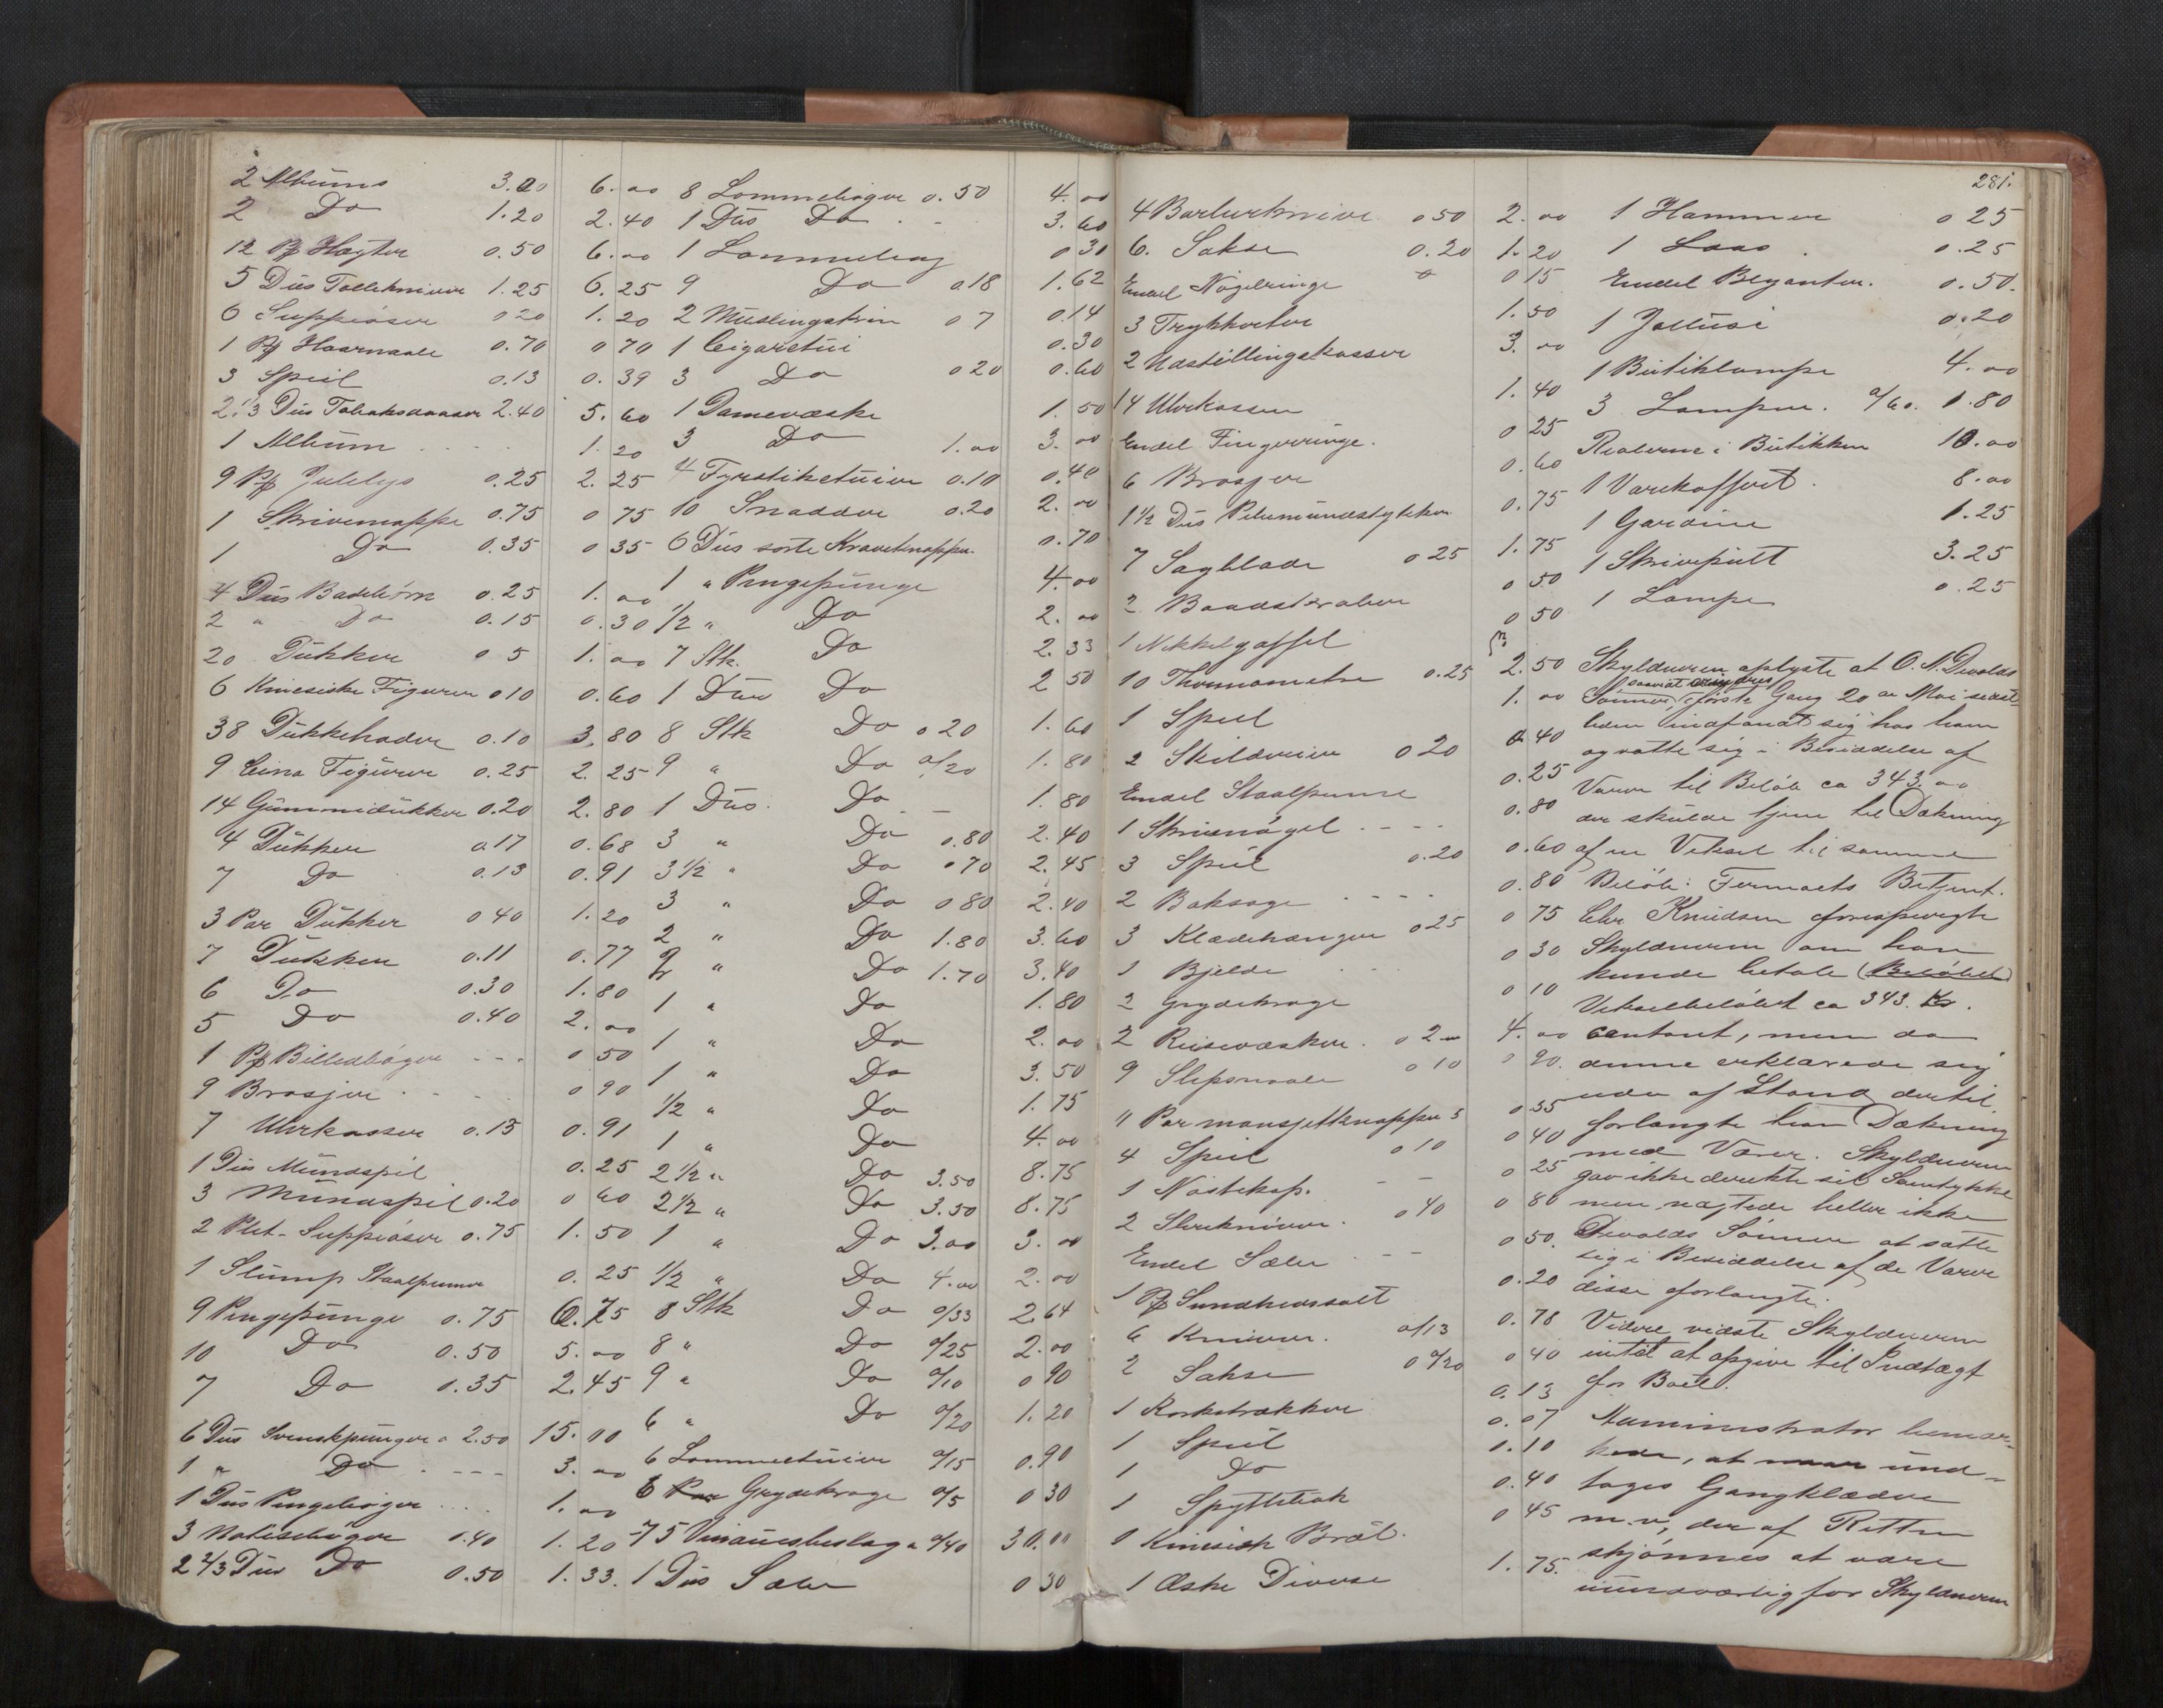 2 Albums 3.00 6.00
2 Do 1.20 2.40
12 Pk Hægter 0.50 6.00
5 Dus Tolleknive 1.25 6.25
6 Suppeøser 0 20 1.20
1 Pk Haarnaale 0.70 0 70
3 Speil 0.13 0.39
2 1/3 Dus Tobaksdaaser 2.40 5.60
1 Album 1.20
9 Pk Julelys 0.25 2.25
1 Skrivemappe 0.75 0 75
1 Do 0.35 0 35
4 Dus Badebørn 0.25 1.00
2 " Do 0.15 0.30
20 Dukker 0 5 1.00
6 Kinesiske Figurer 0 10 0.60
38 Dukkehoder 0.10 3.80
9 Cina Figurer 0.25 2.25
14 Gummidukker 0.20 2.80
4 Dukker 0.17 0.68
7 Do 0.13 0.91
3 Par Dukker 0 40 1.20
7 Dukker 0.11 0.77
6 Do 0.30 1.80
5 Do 0.40 2.00
1 Pk Billedbøger 0 50
9 Brosjer 0 90
7 Uhrkasser 0.13 0.91
1 Dus Mundspil 0.25
3 Mundspil 0.20 0 60
2 Plet-Suppeøser 0.75 1.50
1 Slump Staalpenner 0.25
9 Pengepunge 0.75 6.75
10 Do 0.50 5.00
7 Do 0.35 2.45
6 Dus Svenskpunger a 2.50 15.00
1 " Do 3.00
1 Dus Pengebøger 1.00
3 Notisebøger 0.40 1.20
2 2/3 Dus Do 0.50 1.33
8 Lommebøger 0.50 4.00
1 Dus Do 3.60
1 Lommebog 0 30
9 Do 0.18 1.62
2 Muslingskrin 0 7 0.14
1 Cigaretui 0.30
3 Do 0 20 0.60
1 Damevæske 1.50
3 Do 1.00 3.00
4 Fyrstiketuier 0.10 0.40
10 Snadder 0.20 2.00
6 Dus sorte Kraveknapper 0.70
1 " Pengepunge 4.00
1/2 " Do 2.00
7 Stk. Do 2.33
1 Dus Do 2 50
8 Stk Do 0 20 1.60
9 " Do a/20 1.80
1 Dus Do 1.80
3 " Do 0.80 2.40
3 1/2 " Do 0 70 2.45
3 " Do 0 80 2.40
2 " Do 1.80 3.60
2 " Do 1.70 3.40
1 " Do 1.80
1 " Do 2.00
1 " Do 3.50
1/2 " Do 1.75
1 " Do 4.00
2 1/2 " Do 3.50 8.75
2 1/2 " Do 3.50 8.75
1 " Do 3.00 3.00
1/2 " Do 4.00 2.00
8 Stk Do a/33 2.64
8 " Do a/25 2.00
9 " Do a/10 0 90
6 " Do a/20 1.20
6 Lommeetuier a/15 0.90
6 Par Grydekroge a/5 0 30
75 Vinduesbeslag a a/40 30.00
1 Dus Sæler 0 30
281.
4 Barberknive 0 50 2.00
6. Sakse 0.20 1.20
Endel Nøgelringe 0 15
3 Trykkerter 1.50
2 Udstillingskasser 3.00
14 Uhrkasser 1.40
Endel Fingerringe. 0 25
6 Brosjer 0.60
1 1/2 Dus Pibemundstykker 0.75
7 Sagblade 0 25 1.75
2 Baadskraber 0 50
1 Nikkelgaffel 0 50
10 Thermometre 0.25 2.50
1 Speil 1.00
2 Skilderier 0 20 0 40
Endel Staalpenne 0.25
1 Skruenøgel 0.80
3 Speil 0.20 0.60
2 Baksoge 0.80
3 Klædehænger 0 25 0 75
1 Bjelde 0 30
2 Grydekroge 0 10
2 Reisevæsker 4.00
9 Slipsnaale 0 10 0 90.
11 Par mansjetknapper 5 0.35
4 Speil 0 10 0 40
1 Nøstekop. 0 25
2 Sløikniver. 0 40 0 80
Endel Sæler 0 50.
1 Pk Sundhedssalt 0.20
6 Kniver. a/13 0.78
2 Sakse a/20 0 40
1 Korketrækker 0.13
1 Speil 0.07
1 Do 0.10
1 Spyttebak 0.40
1 Kinesisk Bræt. 0 45
1 Æske Diverse 1.75.
1 Hammer 0 25
1 Laas 0.25
Endel Blyanter. 0.50.
1 Jallusi 0.20
1 Butiklampe 4.00
3 Lamper. a/60. 1.80
Reolerne i Butikken 10.00
1 Varekoffert. 8.00
1 Gardine 1.25
1 Skrivepult 3.25
1 Lampe 0.25
Skyldneren oplyste at O. A. Devolds
Sønner saavidt erindres første Gang 20de Mai sidst-
leden indfandt sig hos ham
og satte sig i Besiddelse af
Varer til Beløb ca 343.00
der skulde tjene til Dækning
af en Veksel til samme
Beløb: Firmaets Betjent.
Chr Knudsen forespurgte
Skyldneren om han
kunde betale (Beløbet)
Vekselbeløbet ca 343. Kr.
contant, men da
denne erklærede sig
ude af Stand dertil,
forlangte han Dækning
med Varer. Skyldneren
gav ikke direkte sit Samtykke
men nægtede heller ikke
Devolds Sønner at sætte
sig i Besiddelse af de Varer
disse forlangte.
Videre vidste Skyldneren
intet at opgive til Indtægt
for Boet.
Administrator bemær-
kede, at und-
tages Gangklæder
m.v, der af Retten
skjønnes at være
uundværlig for Skyldneren